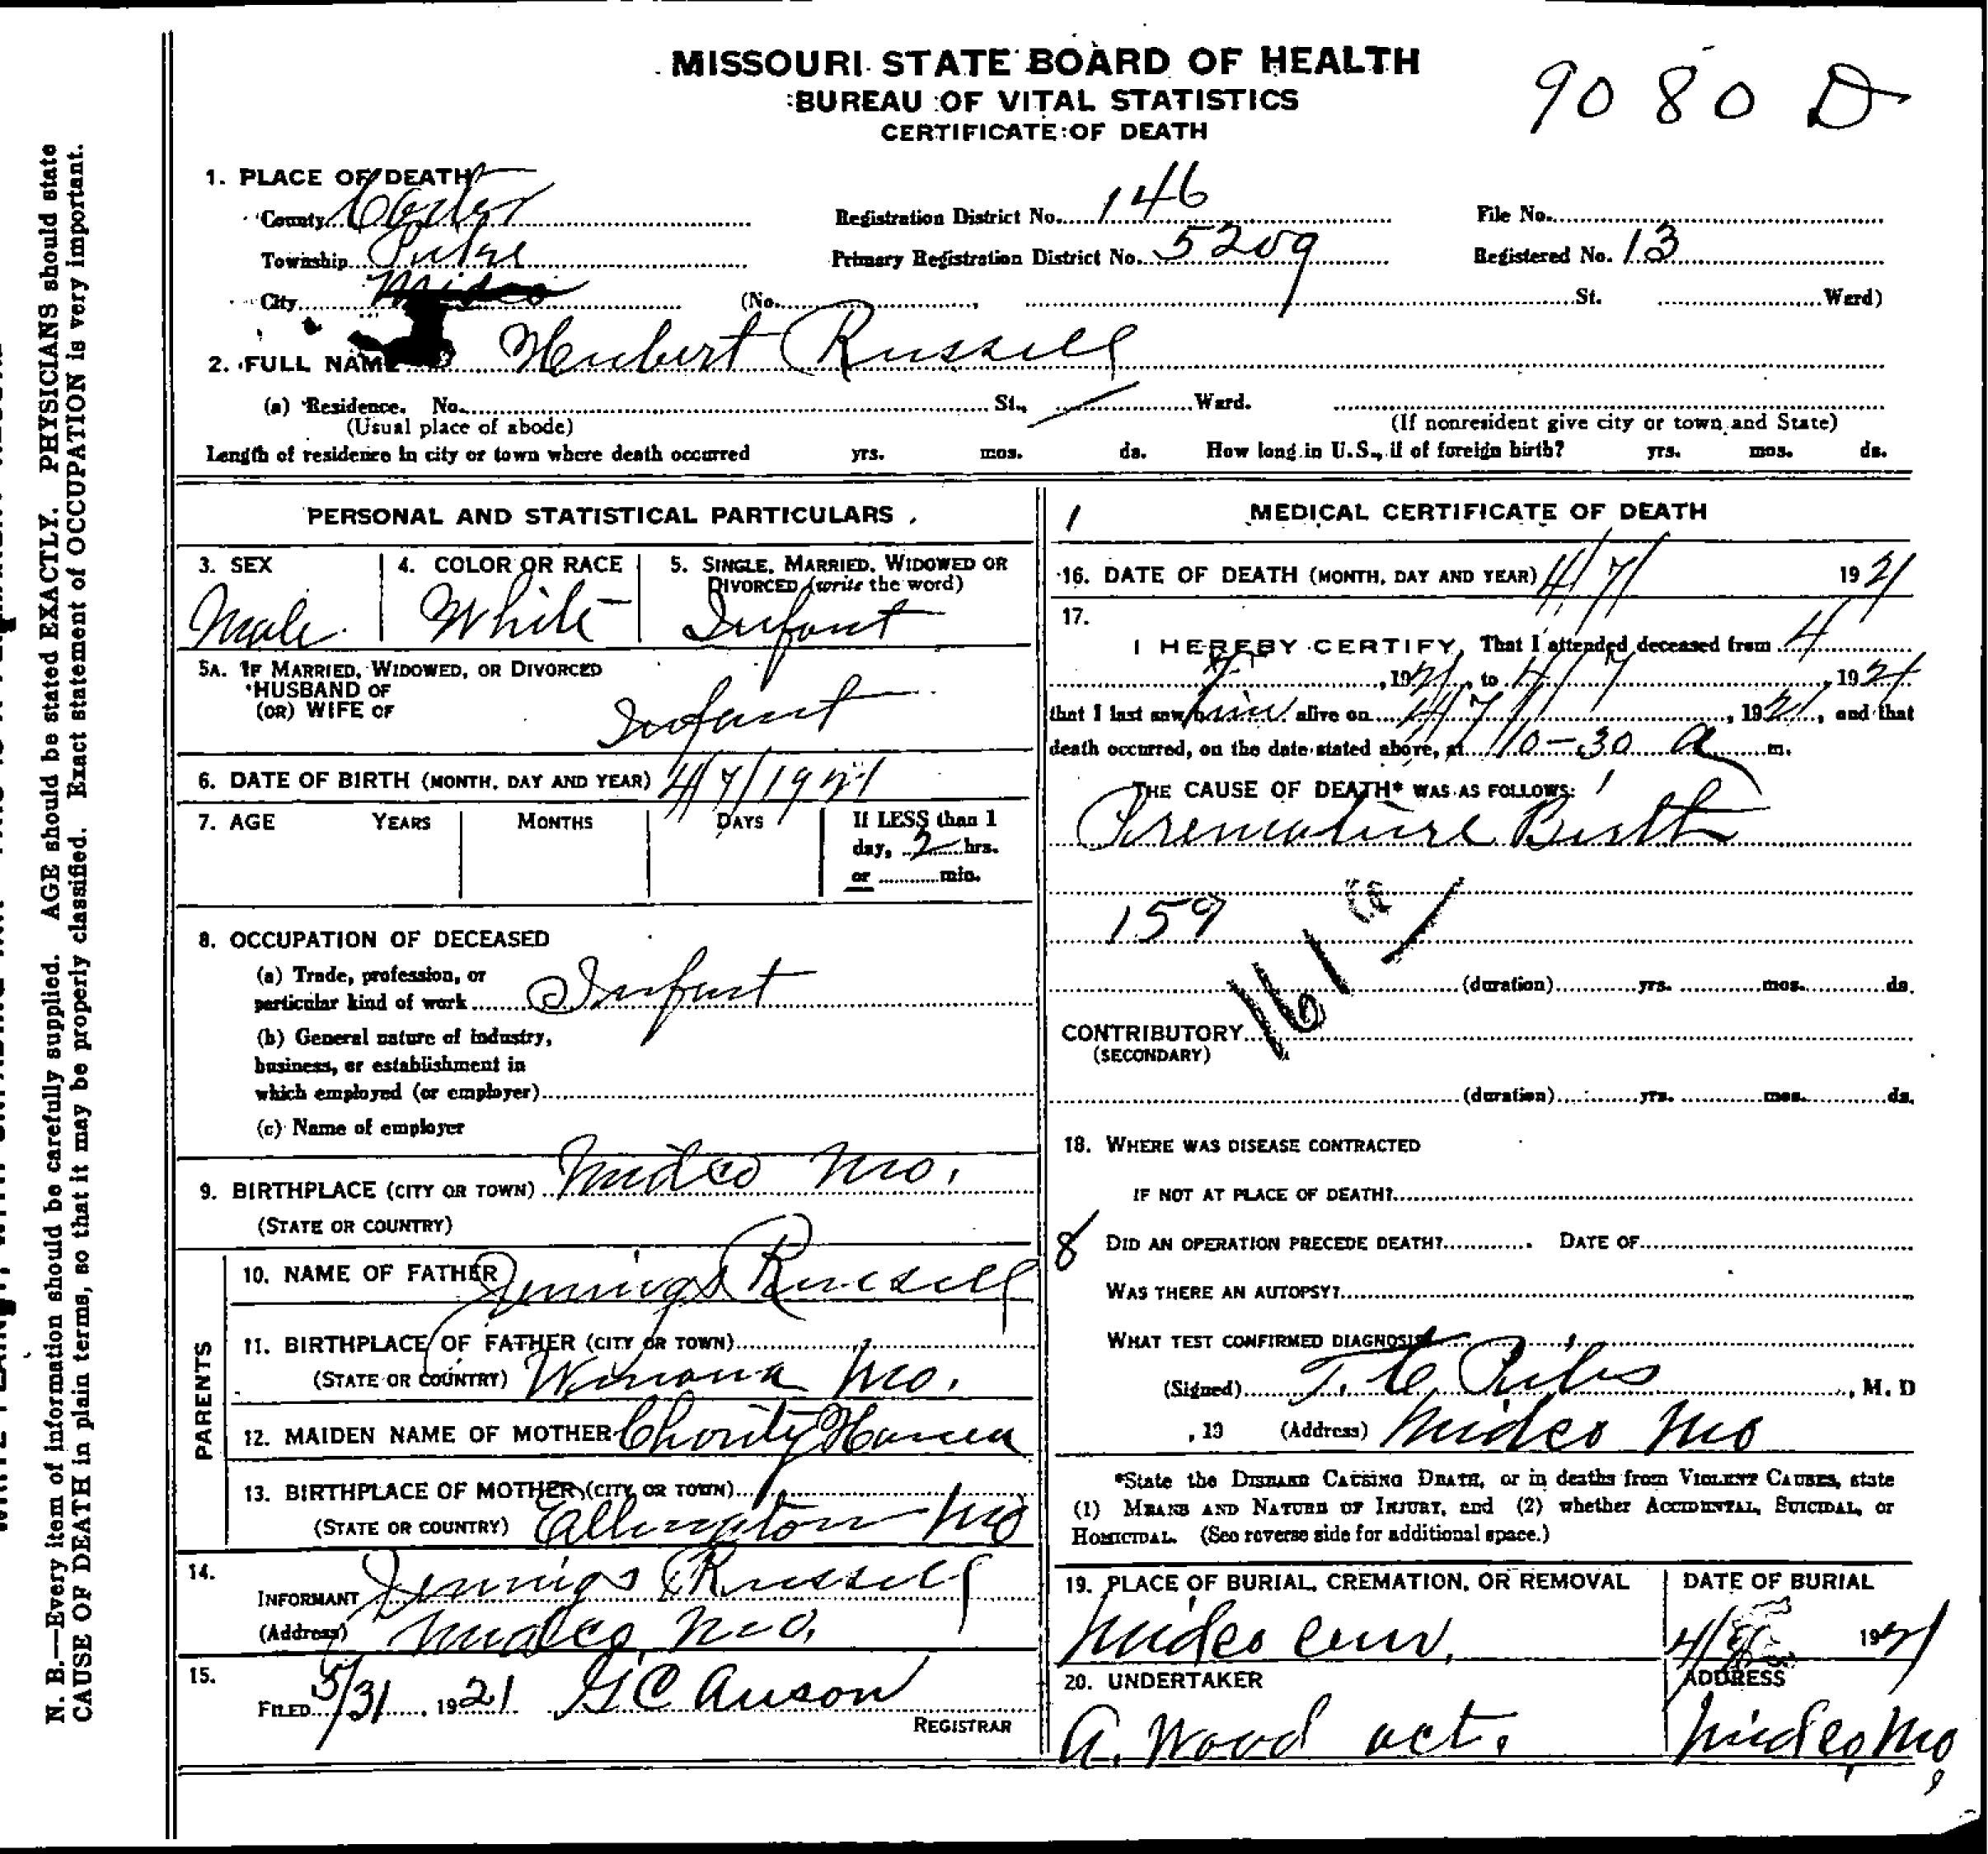 MISSOURI STATE BOARD OF HEALTH
BUREAU OF VITAL STATISTICS
CERTIFICATE OF DEATH
9080 D
1. PLACE OF DEATH
County Carter Registration District No. 146 File No.
Township Pike Primary Registration District No. 5209 Registered No. 13
City (No. , St. Ward)
2. FULL NAME Hubert Russell
(a) Residence. No. St., Ward.
(Usual place of abode) (If nonresident give city or town and State)
Length of residence in city or town where death occurred yrs. mos. ds. How long in U.S., if of foreign birth? yrs. mos. ds.
PERSONAL AND STATISTICAL PARTICULARS
3. SEX 4. COLOR OR RACE 5. SINGLE, MARRIED, WIDOWED OR
DIVORCED (write the word)
Male White Infant
5A. IF MARRIED, WIDOWED, OR DIVORCED
HUSBAND OF
(OR) WIFE OF Infant
6. DATE OF BIRTH (MONTH, DAY AND YEAR) 4/7/1921
7. AGE YEARS MONTHS DAYS If LESS than 1
day, 2 hrs.
or min.
8. OCCUPATION OF DECEASED
(a) Trade, profession, or
particular kind of work Infant
(b) General nature of industry,
business, or establishment in
which employed (or employer)
(c) Name of employer
9. BIRTHPLACE (CITY OR TOWN) Midco Mo.
(STATE OR COUNTRY)
PARENTS
10. NAME OF FATHER Jennings Russell
11. BIRTHPLACE OF FATHER (CITY OR TOWN)
(STATE OR COUNTRY) Winona Mo.
12. MAIDEN NAME OF MOTHER Chority
13. BIRTHPLACE OF MOTHER (CITY OR TOWN)
(STATE OR COUNTRY) Ellington Mo
14.
INFORMANT Jennings Russell
(Address) Midco, Mo.
15.
FILED 5/31, 1921 G C Anson
REGISTRAR
1 MEDICAL CERTIFICATE OF DEATH
16. DATE OF DEATH (MONTH, DAY AND YEAR) 4/7/ 1921
17.
I HEREBY CERTIFY, That I attended deceased from 4/
7, 1921, to 4/7, 1921
that I last saw him alive on 4/7, 1921, and that
death occurred, on the date stated above, at 10-30 a m.
THE CAUSE OF DEATH* WAS AS FOLLOWS:
Premature Birth
159
161
(duration) yrs. mos. ds.
CONTRIBUTORY
(SECONDARY)
(duration) yrs. mos. ds.
18. WHERE WAS DISEASE CONTRACTED
IF NOT AT PLACE OF DEATH?
8 DID AN OPERATION PRECEDE DEATH? DATE OF
WAS THERE AN AUTOPSY?
WHAT TEST CONFIRMED DIAGNOSIS?
(Signed) T. C., M. D
, 19 (Address) Midco Mo
*State the DISEASE CAUSING DEATH, or in deaths from VIOLENT CAUSES, state
(1) MEANS AND NATURE OF INJURY, and (2) whether ACCIDENTAL, SUICIDAL, or
HOMICIDAL. (See reverse side for additional space.)
19. PLACE OF BURIAL, CREMATION, OR REMOVAL DATE OF BURIAL
Midco cem. 4/8 1921
20. UNDERTAKER ADDRESS
A. Wood act. Midco, Mo,
N. B.—Every item of information should be carefully supplied. AGE should be stated EXACTLY. PHYSICIANS should state
CAUSE OF DEATH in plain terms, so that it may be properly classified. Exact statement of OCCUPATION is very important.